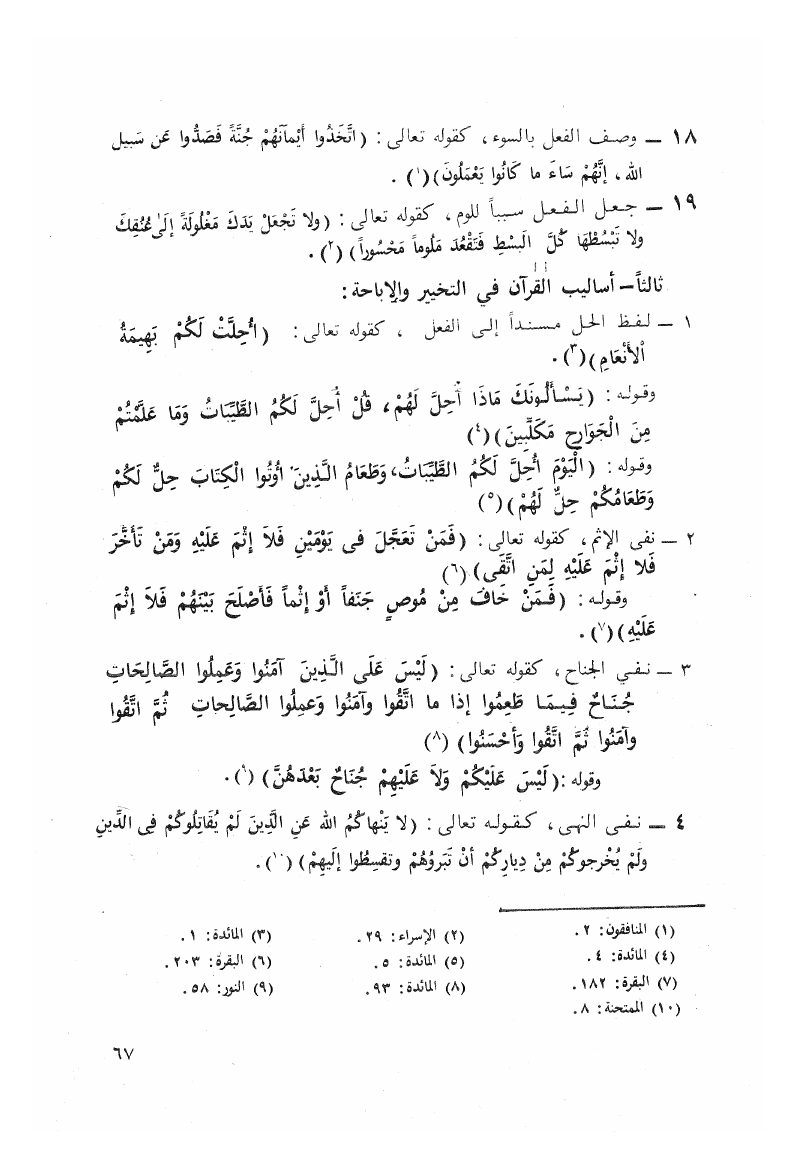 ١٨ ــ وصف الفعل بالسوء ، كقوله تعالى : ( اتَّخَذُوا أَيْمَانَهُمْ جُنَّةً فَصَدُّوا عَن سَبيل
الله ، إنَّهُمْ سَاءَ ما كَانُوا يَعْمَلُونَ ) (١) .
١٩ ــ جعل الفعل سبباً للوم ، كقوله تعالى : ( ولا تَجْعَلْ يَدَكَ مَغْلُولَةً إلَىٰ عُنُقِكَ
ولا تَبْسُطْهَا كُلَّ البَسْطِ فَتَقْعُدَ مَلُوماً مَحْسُوراً ) (٢) .
ثالثاً ــ أساليب القرآن في التخيير والإباحة :
١ ــ لفظ الحل مسنداً إلى الفعل ، كقوله تعالى : ( أُحِلَّتْ لَكُمْ بَهِيمَةُ
الْأَنْعَامِ ) (٣) .
وقوله : ( يَسْأَلُونَكَ مَاذَا أُحِلَّ لَهُمْ ، قُلْ أُحِلَّ لَكُمُ الطَّيِّبَاتُ وَمَا عَلَّمْتُمْ
مِنَ الْجَوَارِحِ مَكَلِّبِينَ ) (٤)
وقوله : ( الْيَوْمَ أُحِلَّ لَكُمُ الطَّيِّبَاتُ ، وَطَعَامُ الَّذِينَ أُوتُوا الْكِتَابَ حِلٌّ لَكُمْ
وَطَعَامُكُمْ حِلٌّ لَهُمْ ) (٥)
٢ ــ نفى الإثم ، كقوله تعالى : ( فَمَنْ تَعَجَّلَ فى يَوْمَيْنِ فَلاَ إثْمَ عَلَيْهِ وَمَنْ تَأَخَّرَ
فَلا إثْمَ عَلَيْهِ لِمَنِ اتَّقَى ) (٦)
وقوله : ( فَمَنْ خَافَ مِنْ مُوصٍ جَنَفاً أَوْ إثْماً فَأَصْلَحَ بَيْنَهُمْ فَلاَ إثْمَ
عَلَيْهِ ) (٧) .
٣ ــ نفي الجناح ، كقوله تعالى : ( لَيْسَ عَلَى الَّذِينَ آمَنُوا وَعَمِلُوا الصَّالِحَاتِ
جُنَاحٌ فِيمَا طَعِمُوا إذا ما اتَّقُوا وآمَنُوا وَعمِلُوا الصَّالِحَاتِ ثُمَّ اتَّقُوا
وآمَنُوا ثُمَّ اتَّقُوا وَأَحْسَنُوا ) (٨)
وقوله : ( لَيْسَ عَلَيْكُمْ وَلاَ عَلَيْهِمْ جُنَاحٌ بَعْدَهُنَّ ) (٩) .
٤ ــ نفى النهى ، كقوله تعالى : ( لا يَنْهاكُمُ الله عَنِ الَّذِينَ لَمْ يُقَاتِلُوكُمْ فِى الدِّينِ
ولَمْ يُخْرجوكُمْ مِنْ دِيارِكُمْ أنْ تَبَرُوْهُمْ وتقسِطُوا إلَيهِمْ ) (١٠) .
(١) المنافقون : ٢ . (٢) الإسراء : ٢٩ . (٣) المائدة : ١ .
(٤) المائدة : ٤ . (٥) المائدة : ٥ . (٦) البقرة : ٢٠٣ .
(٧) البقرة : ١٨٢ . (٨) المائدة : ٩٣ . (٩) النور : ٥٨ .
(١٠) الممتحنة : ٨ .
٦٧